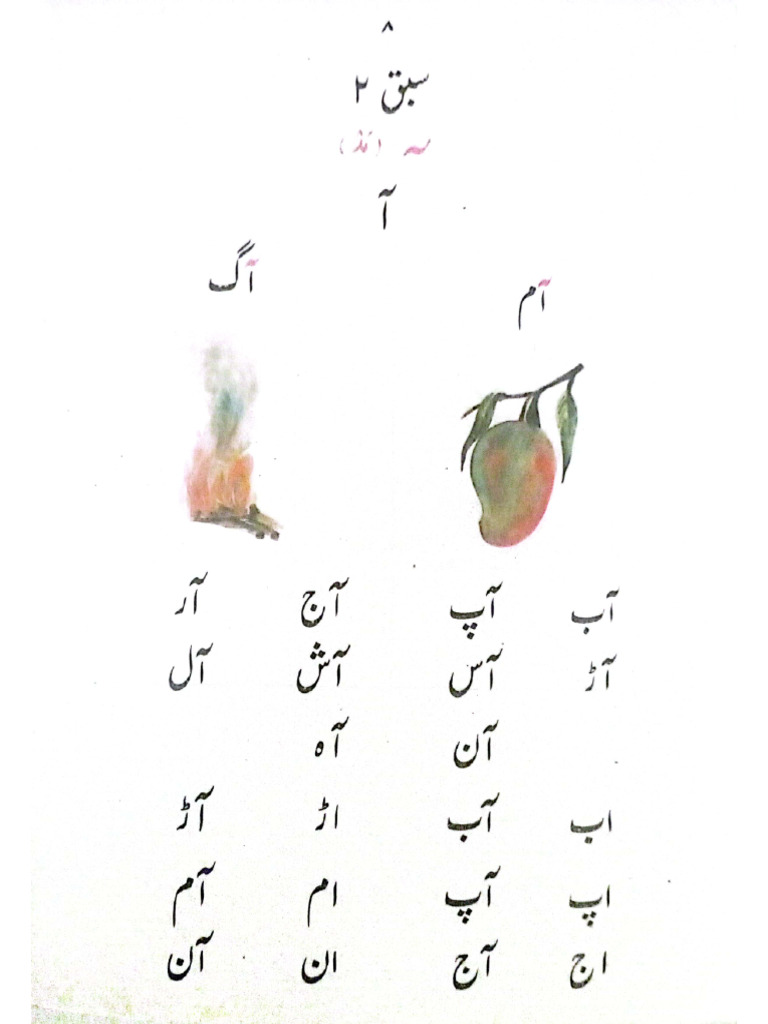 ۸
سبق ۲
ٓ (مَد)
آ
آم آگ
آب آپ آج آر
آڑ آس آش آل
آن آہ
اب آب اڑ آڑ
اپ آپ ام آم
اج آج ان آن